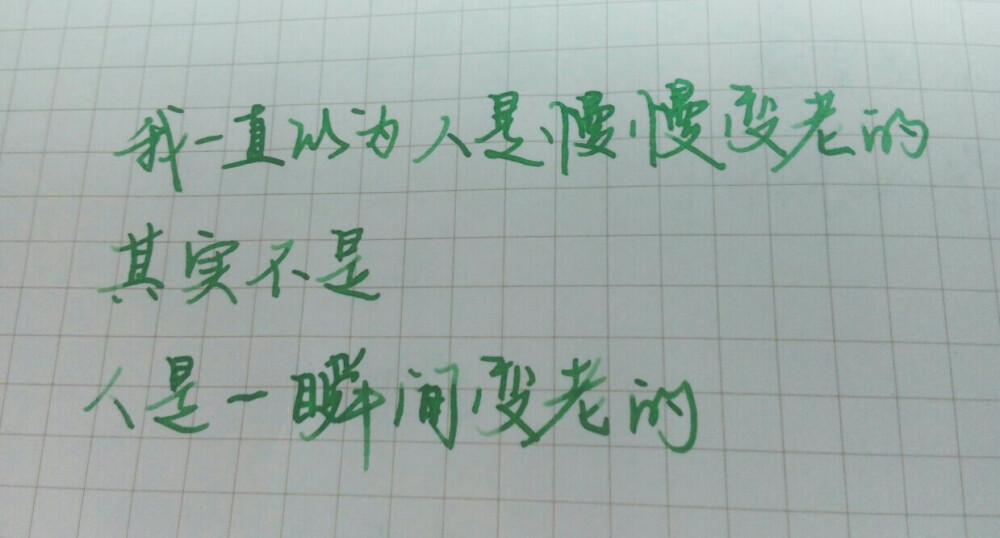 我一直以为人是慢慢变老的
其实不是
人是一瞬间变老的